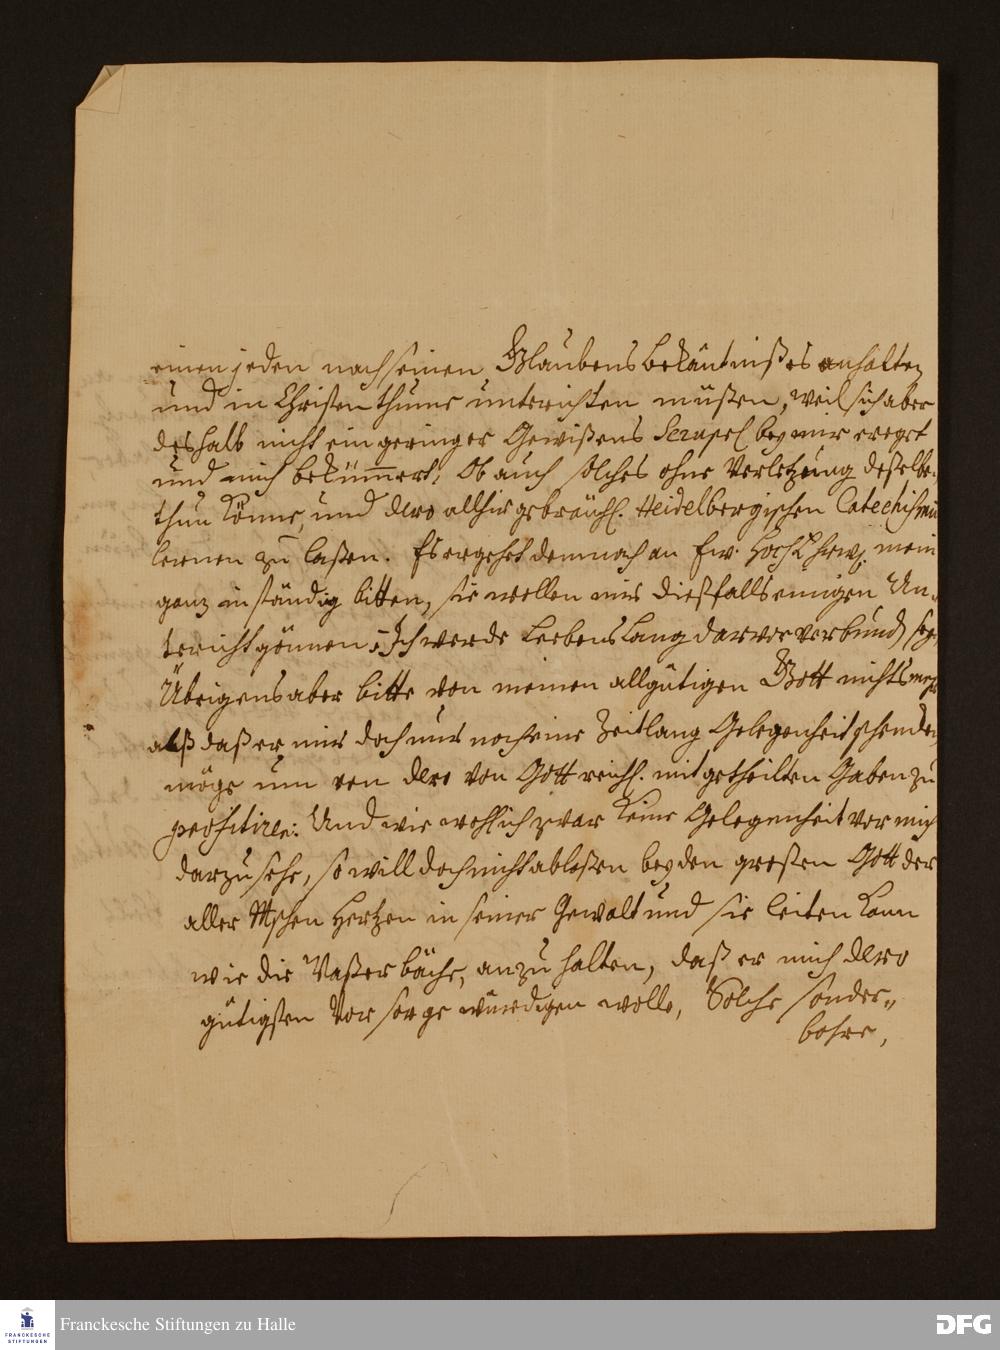 einen jeden nach seinen Glaubens bekäntnißes anhalten
und in Christenthume unterichten müßen, weil sich aber
deshalb nicht ein geringer Gewißens Scrupel bey mir ereget
und mich bekümmert, Ob auch solches ohne Verletzung deßelbe.
thun könne, und dero allhir gebräuchl. Heidelbergischen Catechismu
lernen zu laßen. Es ergehet demnach an Ew. HochEhrw. mein
ganz inständig bitten, sie wollen mir dießfalls einigen Un-
tericht gönnen, Ich werde Leebens lang darvor verbund. sey.
Übrigens aber bitte von meinen allgütigen Gott nichts mehr
alß daß er mir doch nur noch eine Zeitlang Gelegenheit schencken
möge um von dero von Gott reichl. mitgetheilten Gaben zu
profitiren: Und wie wohl ich zwar keine Gelegenheit vor mich
darzu sehe, so will doch nicht ablaßen bey den großen Gott der
aller Mschen Hertzen in seiner Gewalt und sie leiten kann
wie die Waßerbäche, anzuhalten, daß er mich dero
gütigsten Vorsorge würdigen wolle, Solche sonder-
bahre,
Franckesche Stiftungen zu Halle
FRANCKESCHE
STIFTUNGEN
DFG